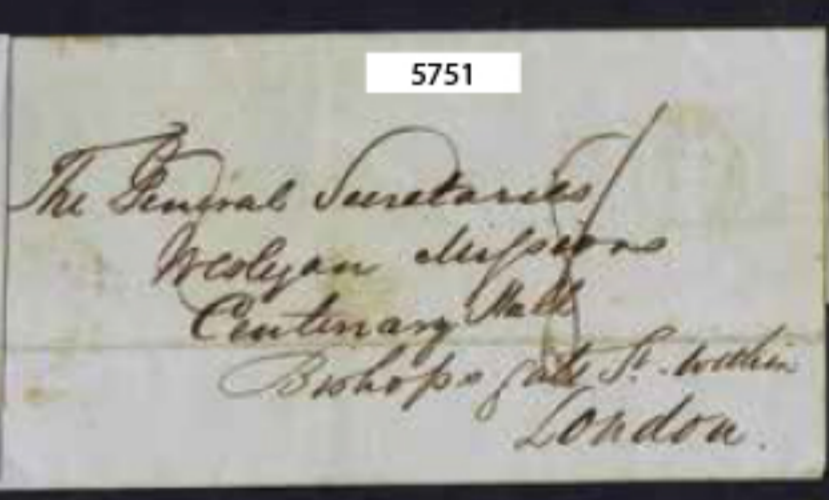 5751
The General Secretaries
Wesleyan Missions
Centenary Hall
Bishopsgate St. within
London.